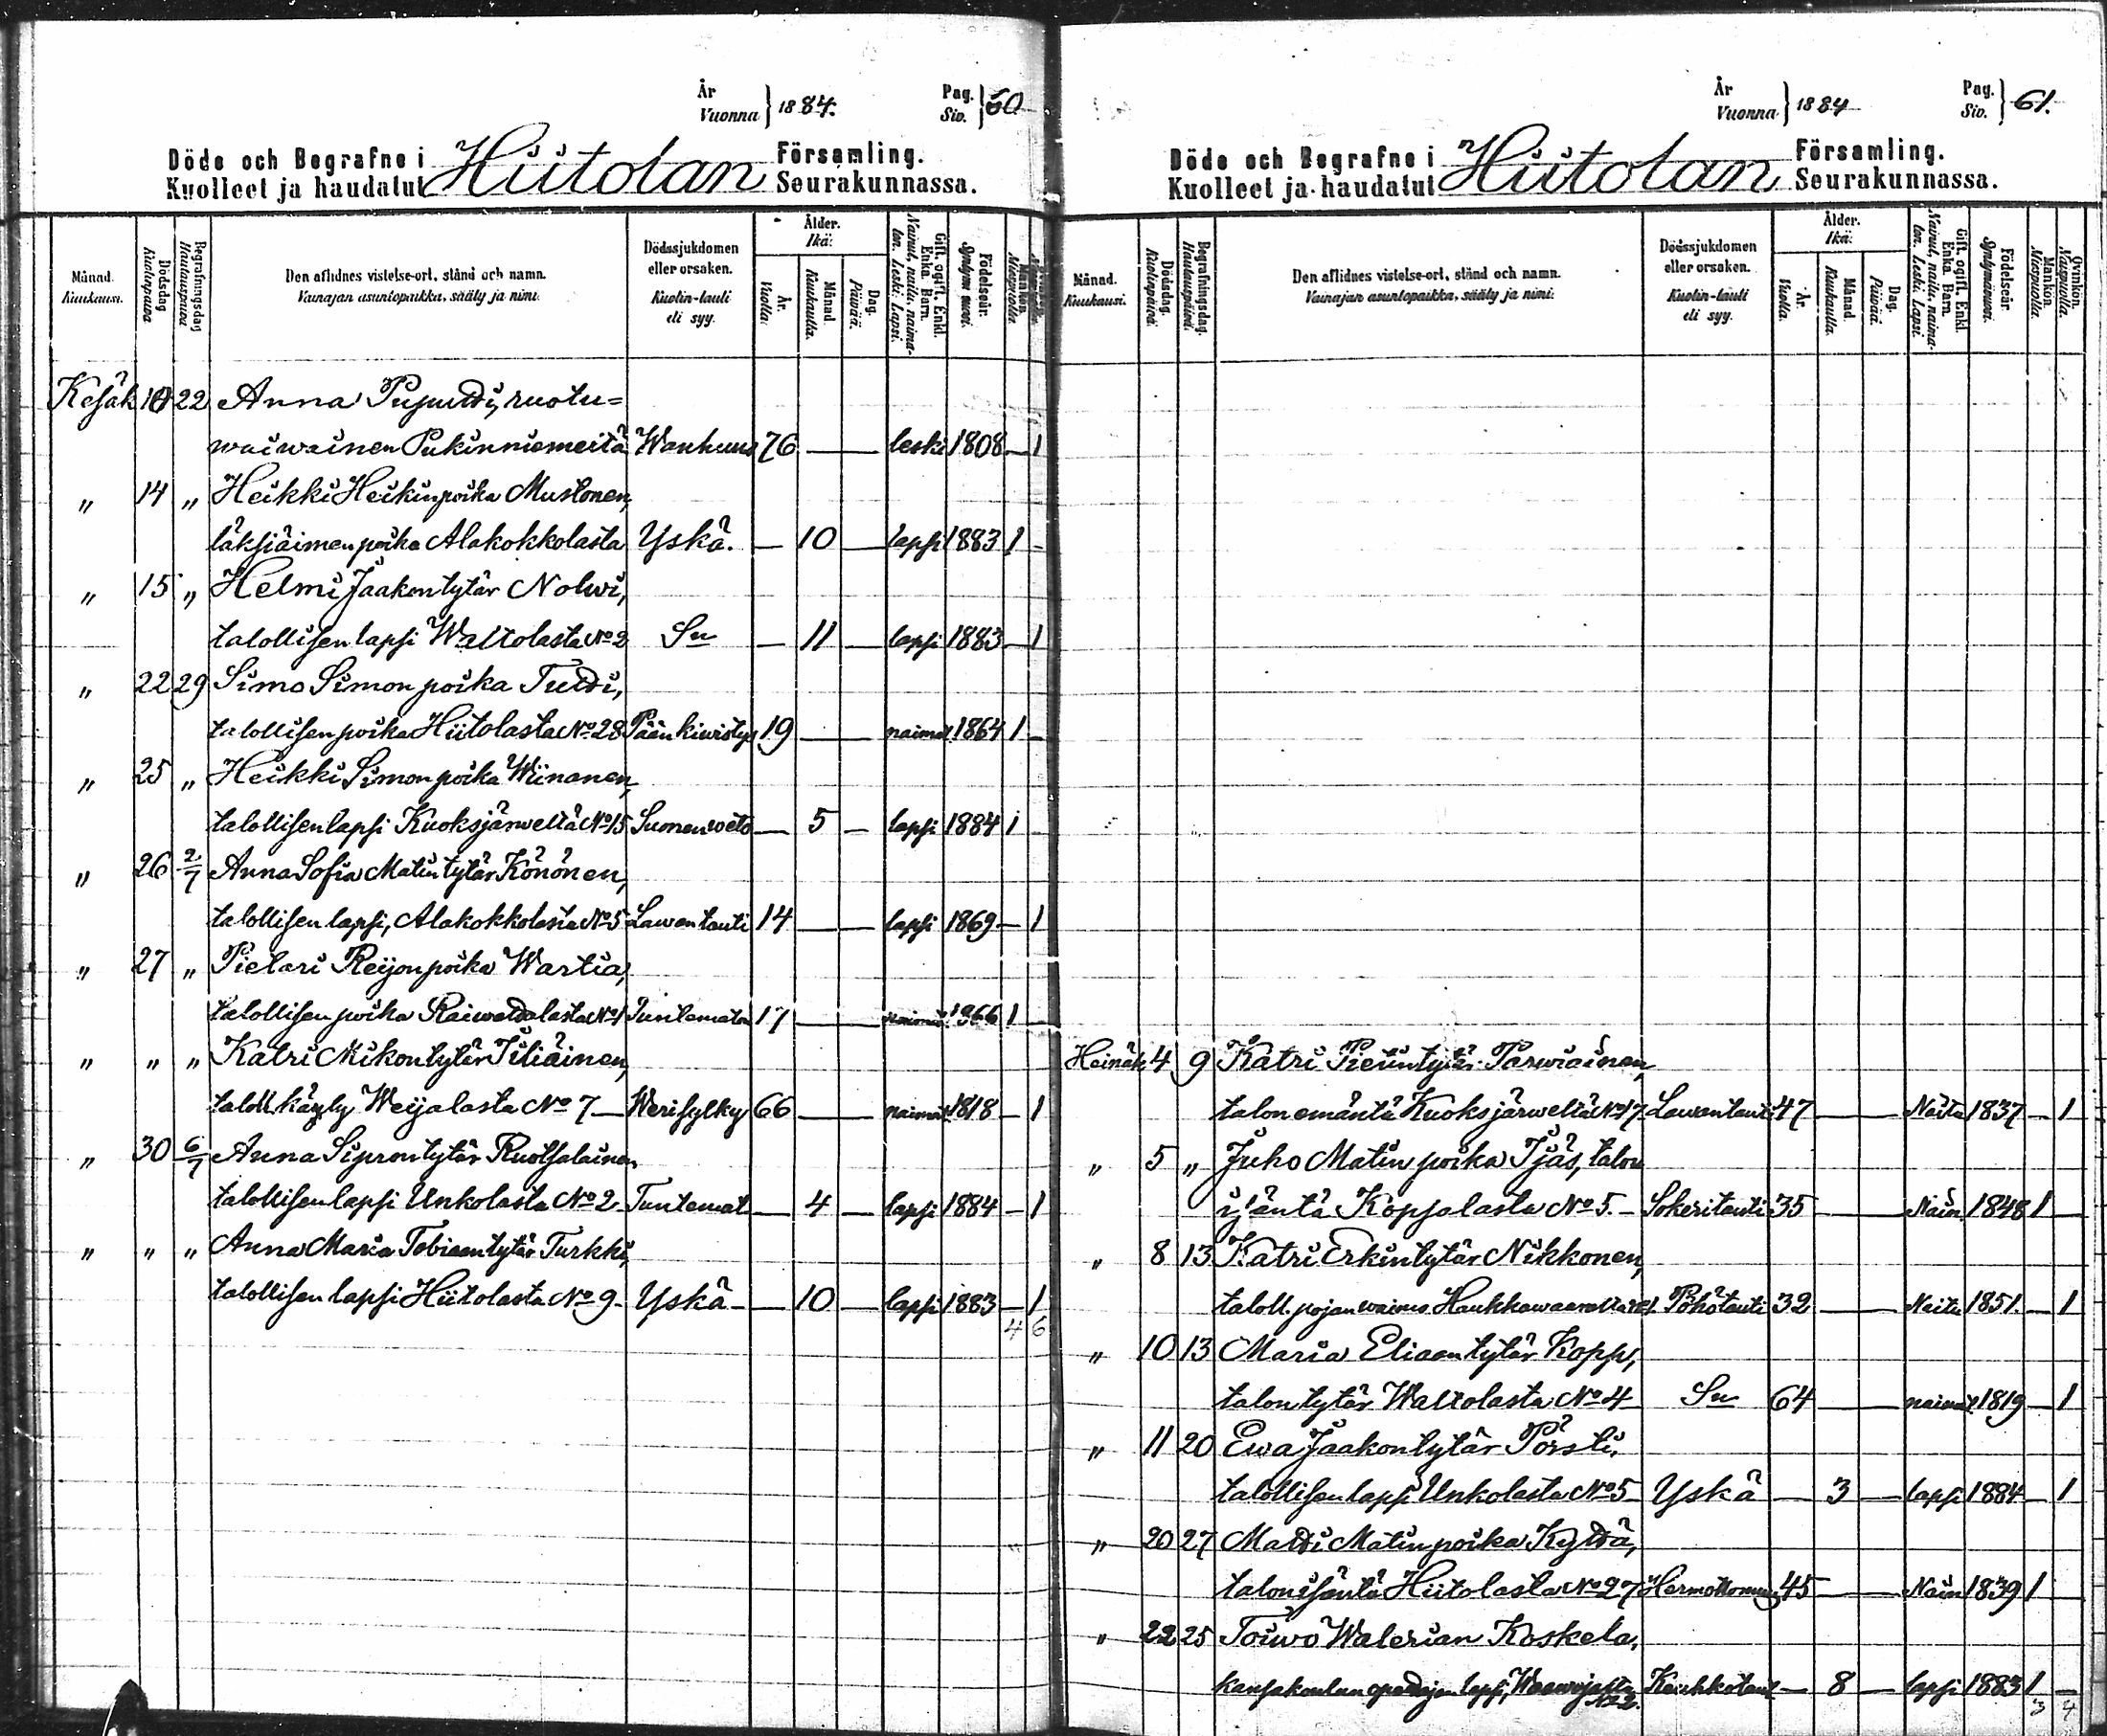 År
Vuonna } 1884.
Pag.
Siv. } 60
Döde och Begrafne i Hiitolan Församling.
Kuolleet ja haudatut Seurakunnassa.
Månad. Kuukausi.
Dödsdag Kuolinpäivä
Begrafningsdag Hautauspäivä
Den aflidnes vistelse-ort, stånd och namn.
Vainajan asuntopaikka, sääty ja nimi.
Dödssjukdomen eller orsaken.
Kuolin-tauti eli syy.
Ålder. Ikä:
År. Vuotta.
Månad. Kuukautta.
Dag. Päivää.
Gift, ogift, Enkl. Enka. Barn.
Nainut, naitu, naimaton. Leski. Lapsi.
Födelseår. Syntymävuosi.
Mankön. Miespuolta.
Kesäk 10 22 Anna Pujuidi, ruotu=
waiwainen Pukinniemeltä Wanhuus 76 — — leski 1808 — 1
" 14 " Heikki Heikinpoika Mustonen,
läksiäimen poika Alakokkolasta Yskä. — 10 — lapsi 1883 1 —
" 15 " Helmi Jaakontytär Nolwi,
talollisen lapsi Waltolasta No 2 Sn — 11 — lapsi 1883 — 1
" 22 29 Simo Simonpoika Tuidi,
talollisen poika Hiitolasta No 28 Pään kiwistys 19 — — naimat. 1864 1 —
" 25 " Heikki Simonpoika Wiinanen,
talollisen lapsi Kuoksjärweltä No 15 Suonenweto — 5 — lapsi 1884 1
" 26 2/7 Anna Sofia Matintytär Könönen,
talollisen lapsi, Alakokkolasta No 5 Lawantauti 14 — — lapsi 1869 — 1
" 27 " Pielari Reijonpoika Wartia,
talollisen poika Raiwattalasta No 1 Tuntematon 17 — — naimat. 1866 1 —
" " " Katri Mikontytär Tiliäinen,
taloll. käyly Weijalasta No 7 — Werisylky 66 — — naimat. 1818 — 1
" 30 6/7 Anna Siprontytär Ruotsalainen
talollisen lapsi Unkolasta No 2 Tuntemat — 4 — lapsi 1884 — 1
" " " Anna Maria Tobiaantytär Turkki,
talollisen lapsi Hiitolasta No 9 Yskä — 10 — lapsi 1883 — 1
4 6
År
Vuonna } 1884
Pag.
Siv. } 61.
Döde och Begrafne i Hiitolan Församling.
Kuolleet ja haudatut Seurakunnassa.
Månad. Kuukausi.
Dödsdag. Kuolinpäivä.
Begrafningsdag. Hautauspäivä.
Den aflidnes vistelse-ort, stånd och namn.
Vainajan asuntopaikka, sääty ja nimi.
Dödssjukdomen eller orsaken.
Kuolin-tauti eli syy.
Ålder. Ikä:
År. Vuotta.
Månad. Kuukautta.
Dag. Päivää.
Gift, ogift, Enkl. Enka. Barn.
Nainut, naitu, naimaton. Leski. Lapsi.
Födelseår. Syntymävuosi.
Mankön. Miespuolta.
Qvinkön. Vaspuolta.
Heinäk 4 9 Katri Pietintytär Parwiainen,
talon emäntä Kuoksjärweltä No 17 Lawantauti 47 — — Naitu 1837 — 1
" 5 " Juho Matinpoika Ijäs, talon
isäntä Koppalasta No 5. — Sokeritauti 35 — — Nain. 1848 1 —
" 8 13 Katri Erkintytär Nikkonen,
taloll. pojan waimo Haukkawaaralta No 1. Pöhötauti 32 — — Naitu 1851. — 1
" 10 13 Maria Eliaantytär Kopp,
talon tytär Waltolasta No 4 Sn 64 — — naimat. 1819 — 1
" 11 20 Ewa Jaakontytär Pörsti,
talollisen lapsi Unkolasta No 5 Yskä — 3 — lapsi 1884 — 1
" 20 27 Matti Matinpoika Kyttä,
talon isäntä Hiitolasta No 27 45 — — Nain 1839 1 —
" 22 25 Toiwo Walerian Koskela,
kansakoulun opettajan lapsi, Keuhkotauti — 8 — lapsi 1883 1 —
No 2.
3 4